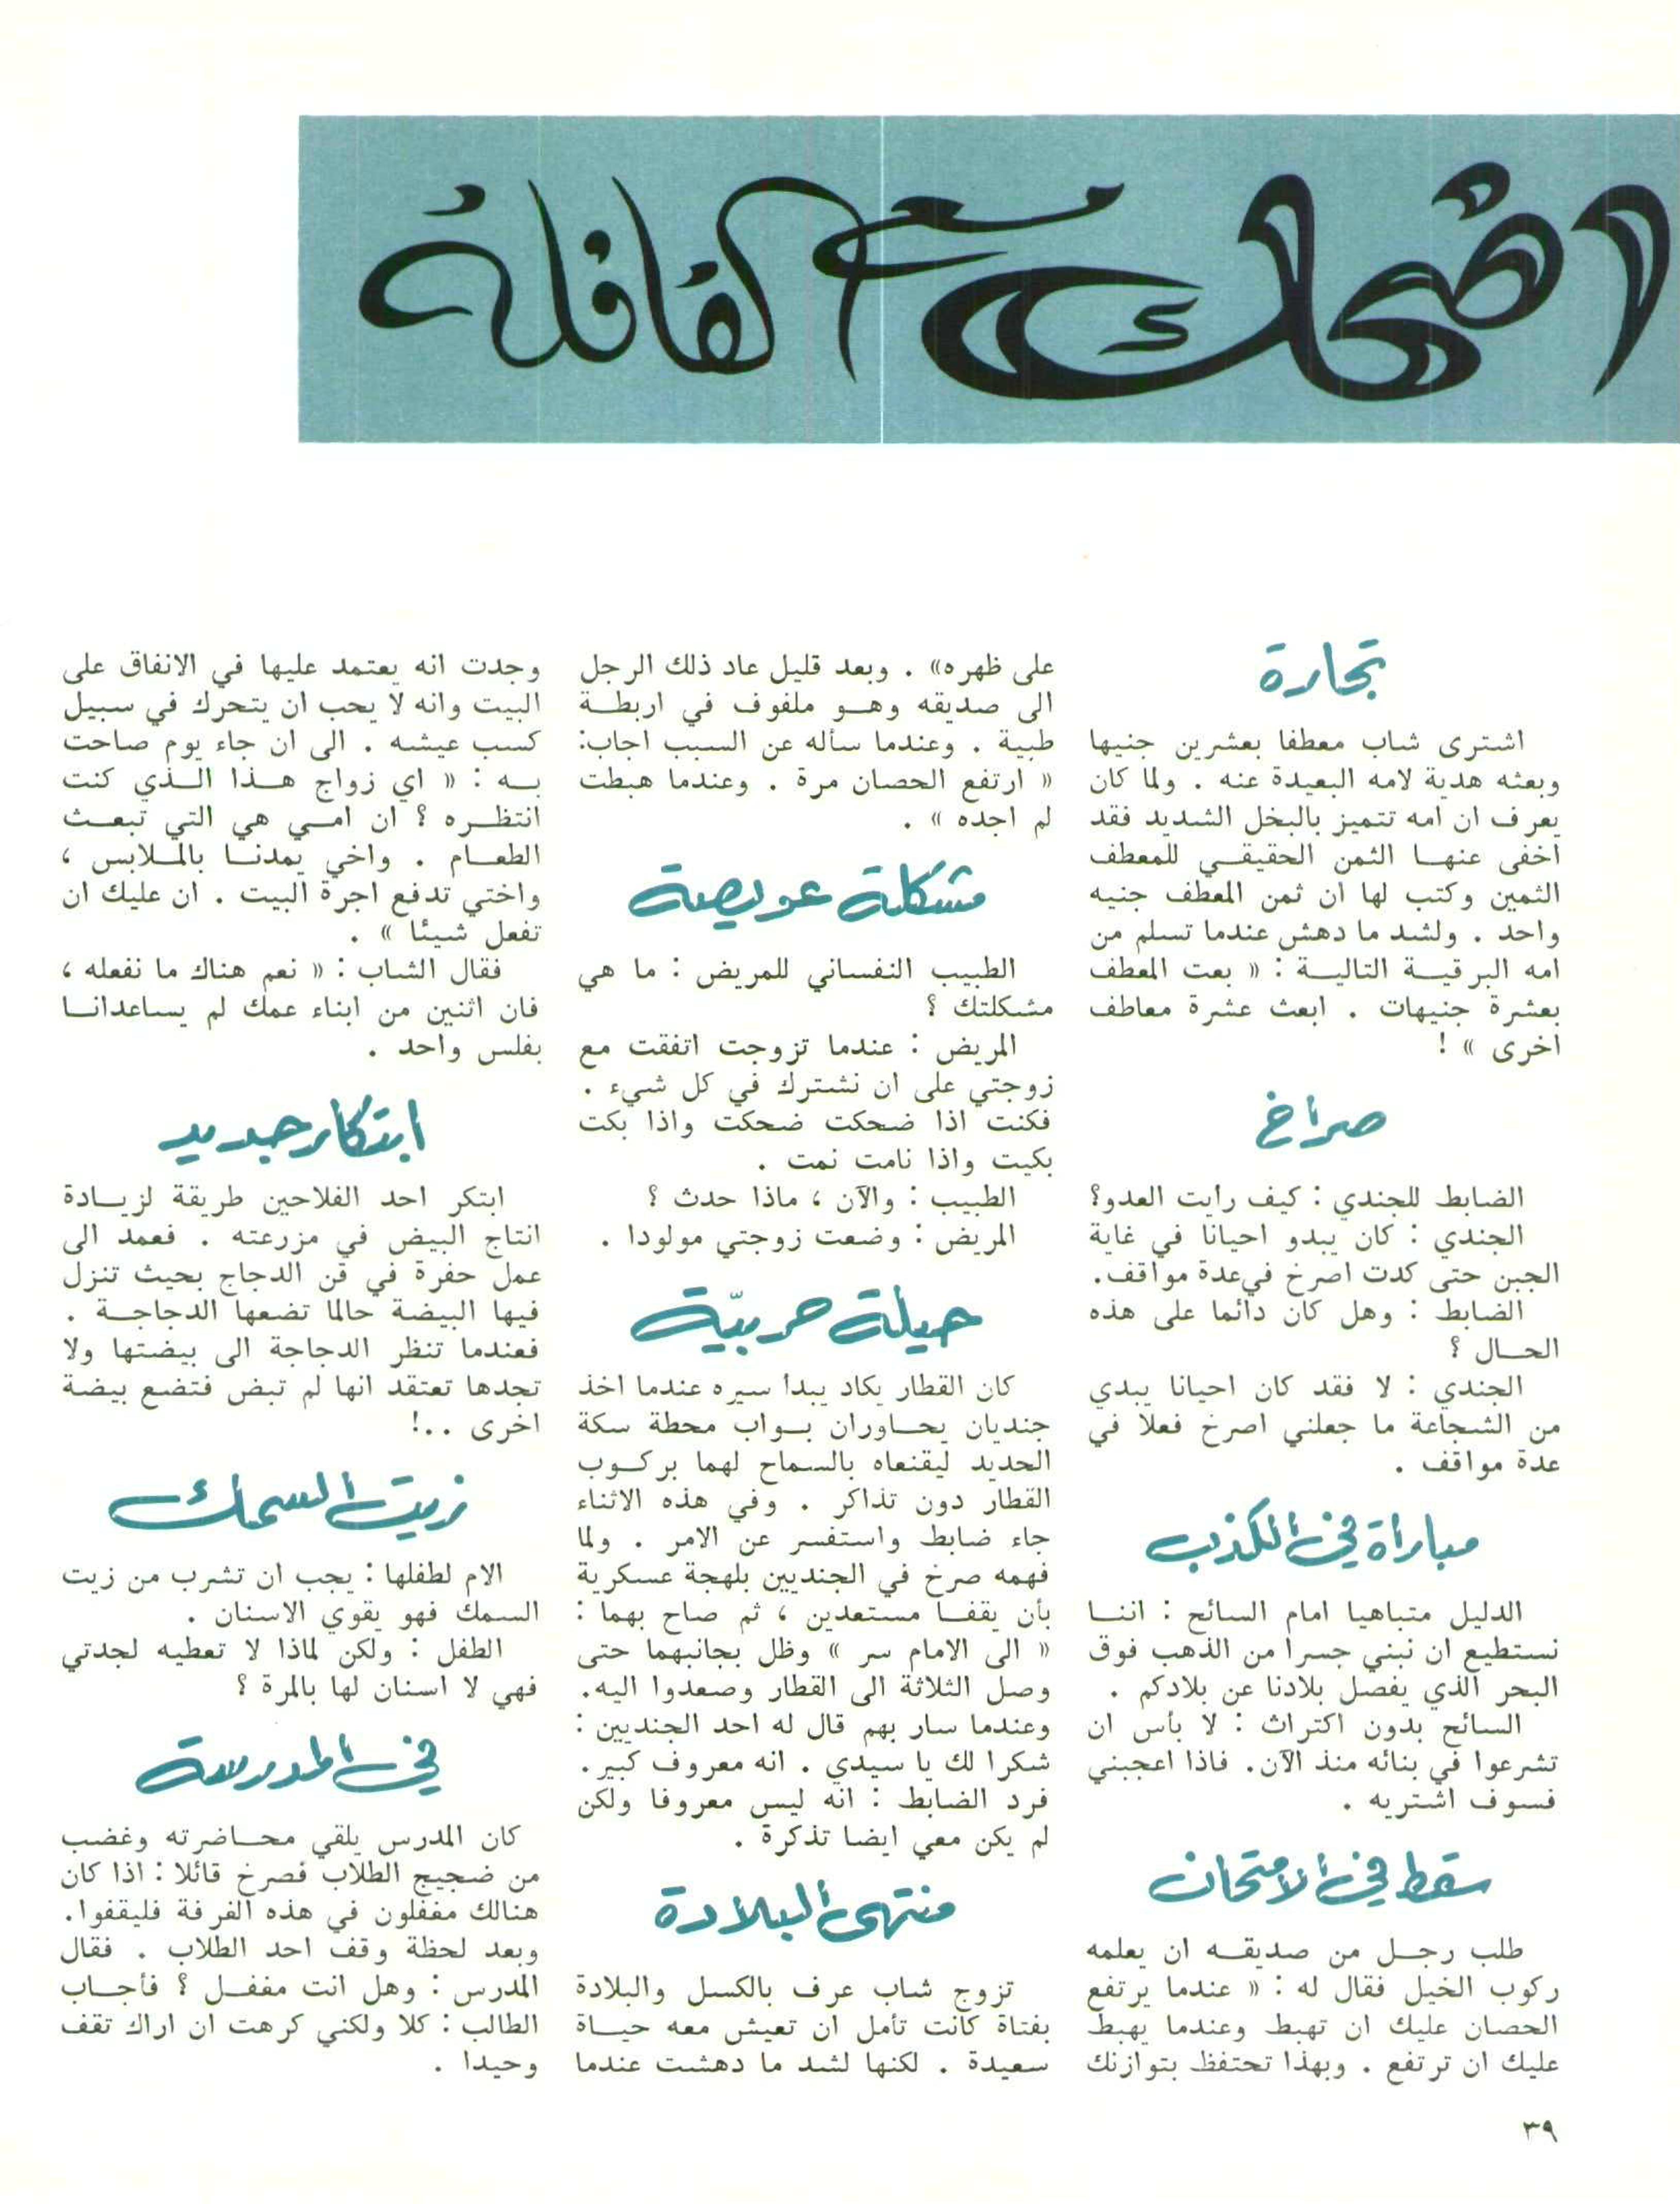 اضحك مع القافلة
تجارة
اشترى شاب معطفا بعشرين جنيها
وبعثه هدية لامه البعيدة عنه . ولما كان
يعرف ان امه تتميز بالبخل الشديد فقد
اخفى عنهـا الثمن الحقيقـي للمعطف
الثمين وكتب لها ان ثمن المعطف جنيه
واحد . ولشد ما دهش عندما تسلم من
امه البرقيـة التاليـة : « بعت المعطف
بعشرة جنيهات . ابعث عشرة معاطف
اخرى » !
صراخ
الضابط للجندي : كيف رايت العدو؟
الجندي : كان يبدو احيانا في غاية
الجبن حتى كدت اصرخ في عدة مواقف.
الضابط : وهل كان دائما على هذه
الحـال ؟
الجندي : لا فقد كان احيانا يبدي
من الشجاعة ما جعلني اصرخ فعلا في
عدة مواقف .
مباراة في الكذب
الدليل متباهيا امام السائح : اننـا
نستطيع ان نبني جسرا من الذهب فوق
البحر الذي يفصل بلادنا عن بلادكم .
السائح بدون اكتراث : لا بأس ان
تشرعوا في بنائه منذ الآن. فاذا اعجبني
فسوف اشتريه .
سقط في الامتحان
طلب رجـل من صديقـه ان يعلمه
ركوب الخيل فقال له : « عندما يرتفع
الحصان عليك ان تهبط وعندما يهبط
عليك ان ترتفع . وبهذا تحتفظ بتوازنك
على ظهره» . وبعد قليل عاد ذلك الرجل
الى صديقه وهـو ملفوف في اربطـة
طبية . وعندما سأله عن السبب اجاب:
« ارتفع الحصان مرة . وعندما هبطت
لم اجده » .
مشكلة عويصة
الطبيب النفساني للمريض : ما هي
مشكلتك ؟
المريض : عندما تزوجت اتفقت مع
زوجتي على ان نشترك في كل شيء .
فكنت اذا ضحكت ضحكت واذا بكت
بكيت واذا نامت نمت .
الطبيب : والآن ، ماذا حدث ؟
المريض : وضعت زوجتي مولودا .
حيلة حربيّة
كان القطار يكاد يبدأ سيره عندما اخذ
جنديان يحـاوران بـواب محطة سكة
الحديد ليقنعاه بالسماح لهما بركـوب
القطار دون تذاكر . وفي هذه الاثناء
جاء ضابط واستفسر عن الامر . ولما
فهمه صرخ في الجنديين بلهجة عسكرية
بأن يقفـا مستعدين ، ثم صاح بهما :
« الى الامام سر » وظل بجانبهما حتى
وصل الثلاثة الى القطار وصعدوا اليه.
وعندما سار بهم قال له احد الجنديين :
شكرا لك يا سيدي . انه معروف كبير.
فرد الضابط : انه ليس معروفا ولكن
لم يكن معي ايضا تذكرة .
منتهى البلادة
تزوج شاب عرف بالكسل والبلادة
بفتاة كانت تأمل ان تعيش معه حيـاة
سعيدة . لكنها لشد ما دهشت عندما
وجدت انه يعتمد عليها في الانفاق على
البيت وانه لا يحب ان يتحرك في سبيل
كسب عيشه . الى ان جاء يوم صاحت
بـه : « اي زواج هـذا الـذي كنت
انتظـره ؟ ان امـي هي التي تبعـث
الطعـام . واخي يمدنـا بالمـلابس ،
واختي تدفع اجرة البيت . ان عليك ان
تفعل شيئا » .
فقال الشاب : « نعم هناك ما نفعله ،
فان اثنين من ابناء عمك لم يساعدانـا
بفلس واحد .
ابتكار جديد
ابتكر احد الفلاحين طريقة لزيـادة
انتاج البيض في مزرعته . فعمد الى
عمل حفرة في قن الدجاج بحيث تنزل
فيها البيضة حالما تضعها الدجاجـة .
فعندما تنظر الدجاجة الى بيضتها ولا
تجدها تعتقد انها لم تبض فتضع بيضة
اخرى ..!
زيت السمك
الام لطفلها : يجب ان تشرب من زيت
السمك فهو يقوي الاسنان .
الطفل : ولكن لماذا لا تعطيه لجدتي
فهي لا اسنان لها بالمرة ؟
في المدرسة
كان المدرس يلقي محـاضرته وغضب
من ضجيج الطلاب فصرخ قائلا : اذا كان
هنالك مغفلون في هذه الغرفة فليقفوا.
وبعد لحظة وقف احد الطلاب . فقال
المدرس : وهل انت مغفـل ؟ فأجـاب
الطالب : كلا ولكني كرهت ان اراك تقف
وحيدا .
٣٩